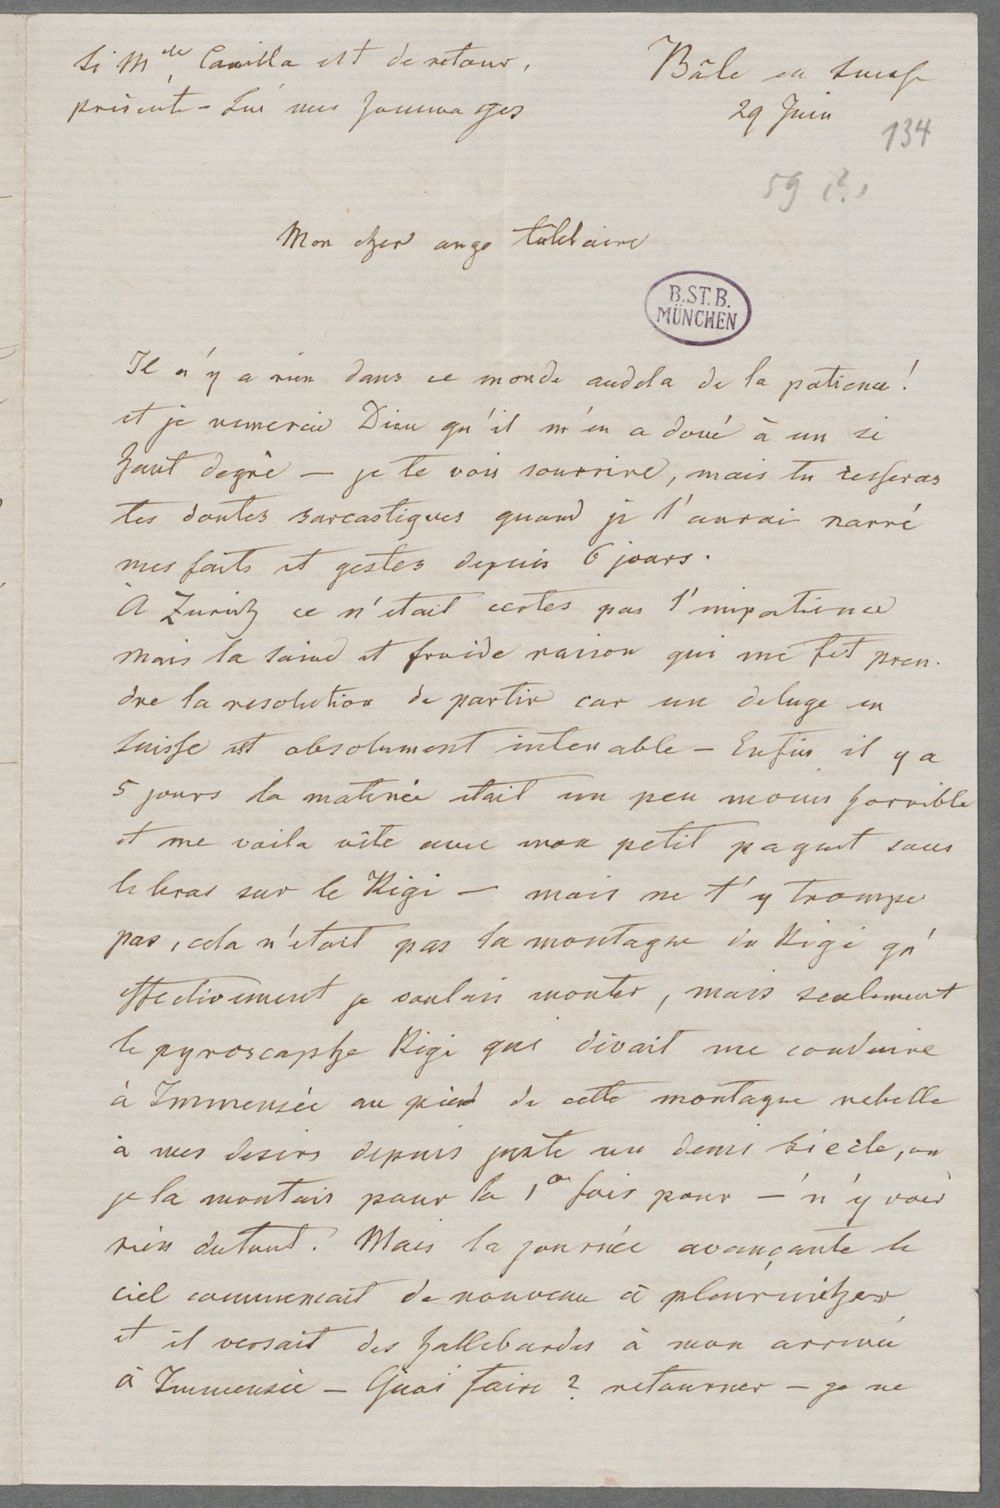 Si Mlle Camilla est de retour,
présente-lui mes hommages
Bâle en Suisse
29 Juin
134
59 (?)
Mon cher ange tutelaire
B.ST.B.
MÜNCHEN
Il n'y a rien dans ce monde audela de la patience!
et je remercie Dieu qu'il m'en a doué à un si
haut degrè — je te vois sourrire, mais tu cesseras
tes doutes sarcastiques quand je t'aurai narré
mes faits et gestes depuis 6 jours.
À Zurich ce n'etait certes pas l'impatience
mais la saine et froide raison qui me fit pren-
dre la resolution de partir car un deluge en
Suisse est absolument intenable — Enfin il y a
5 jours la matinée etait un peu moins horrible
et me voila vîte avec mon petit paquet sous
le bras sur le Rigi — mais ne t'y trompe
pas, cela n'etait pas la montagne du Rigi qu'
effectivement je voulais monter, mais seulement
le pyroscaphe Rigi qui divait me conduire
à Immensée au pied de cette montagne rebelle
à mes desirs depuis juste un demi siecle, ou
je la montais pour la 1re fois pour — n'y voir
rien dutout! Mais la journée avançante le
ciel commencait de nouveau à pleurnicher
et il versait des hallebardes à mon arrivée
à Immensée — Quoi faire? retourner — je ne